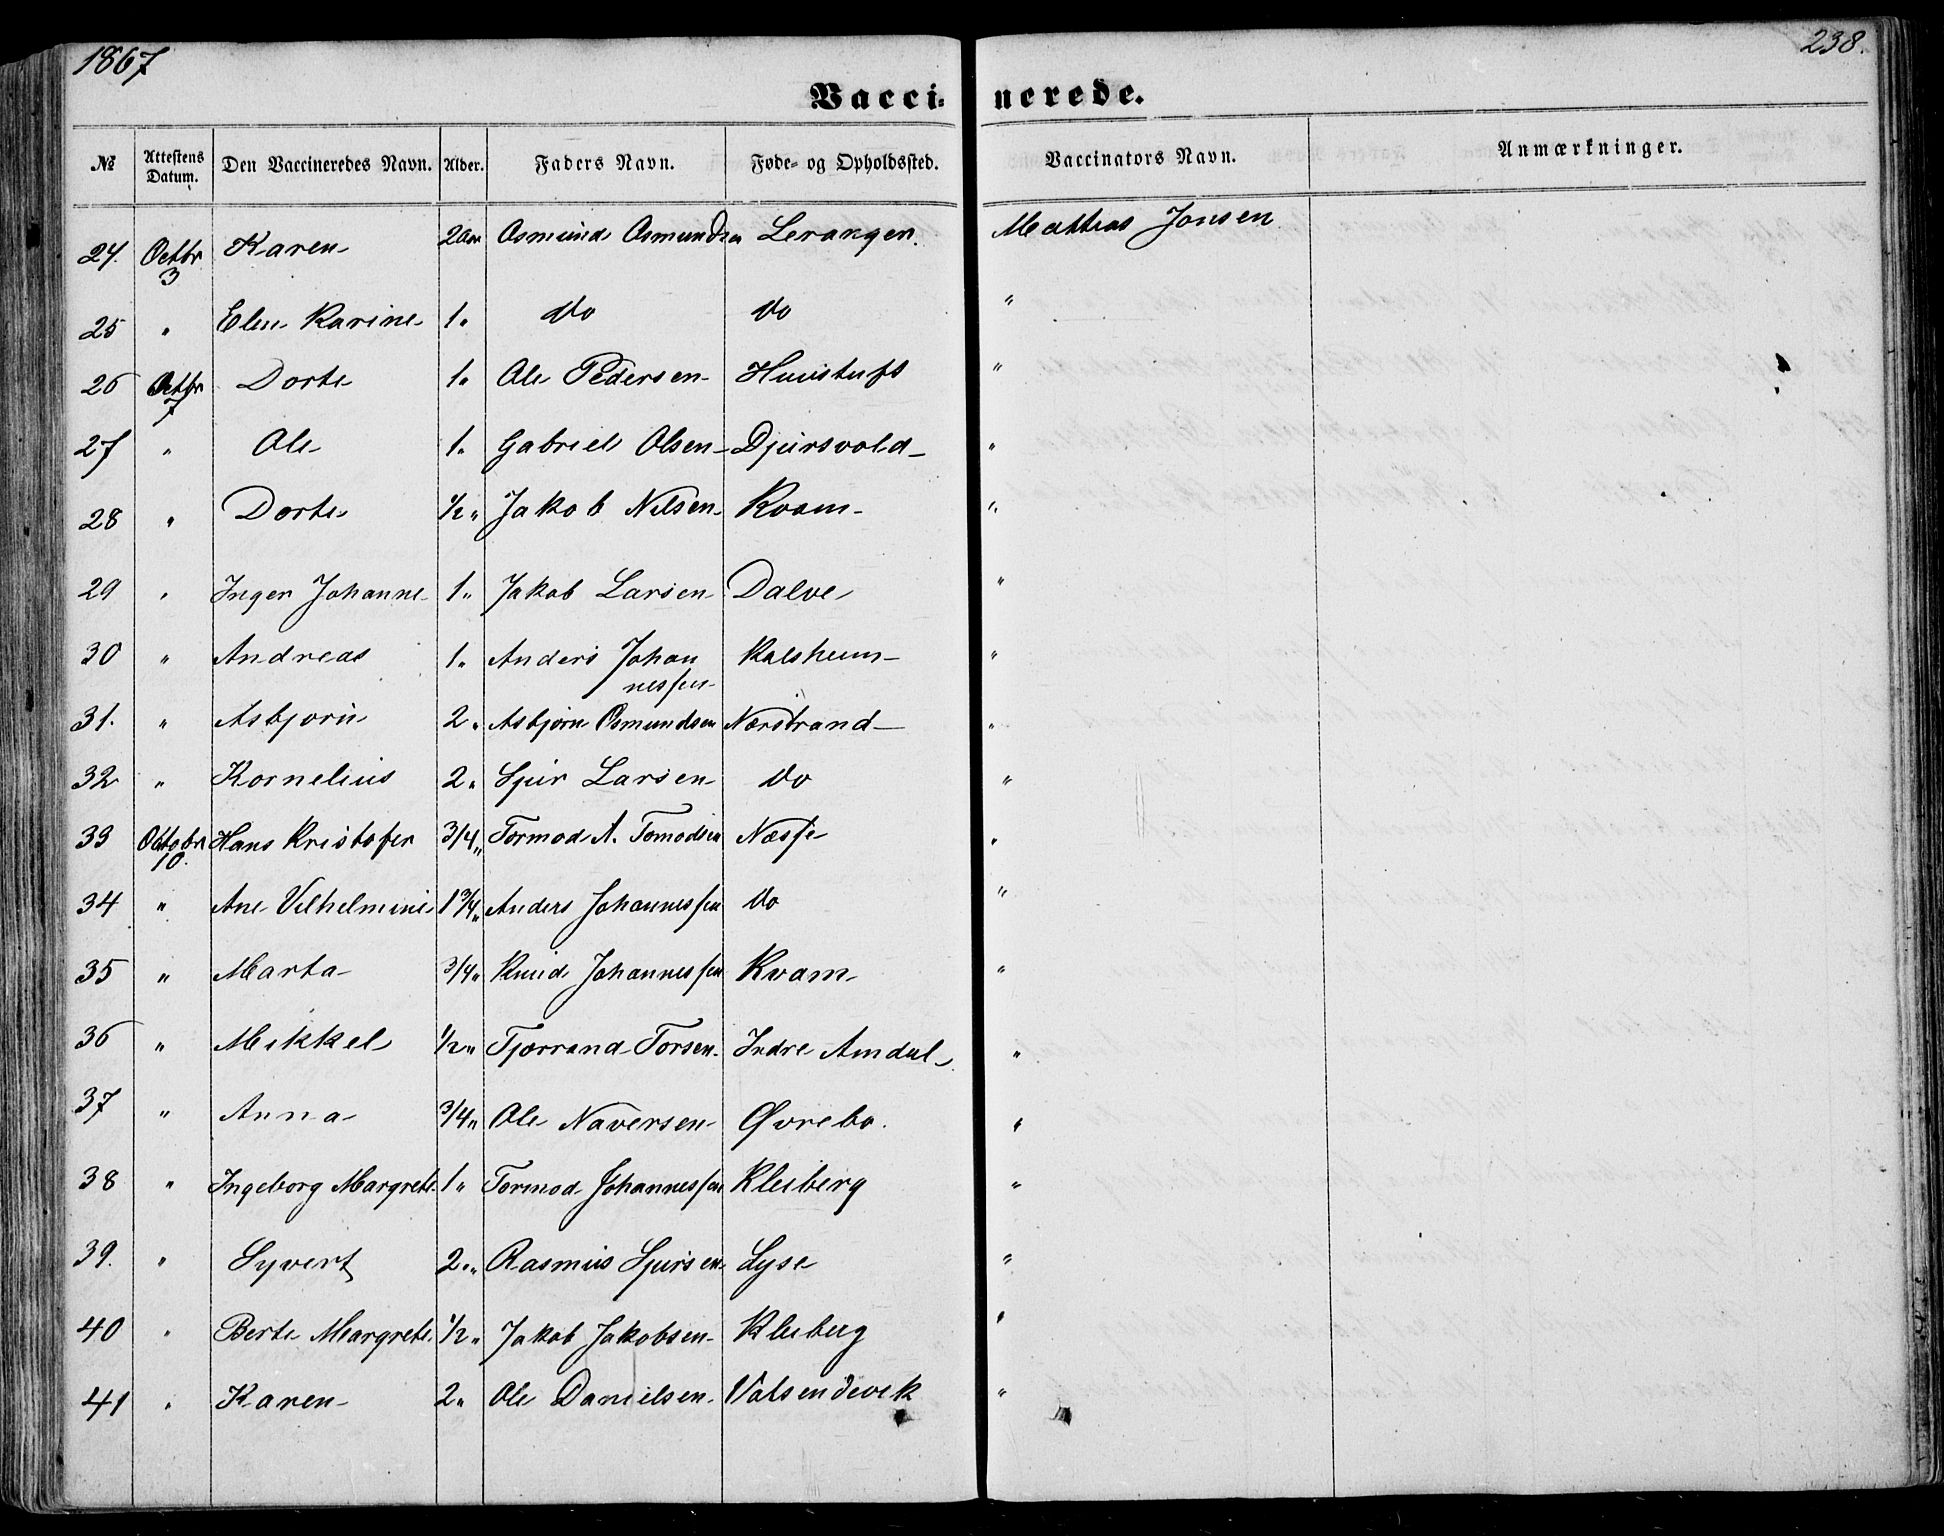 1867
238.
Vaccinerede.
№ Attestens Datum. Den Vaccineredes Navn. Alder. Faders Navn. Føde- og Opholdssted. Vaccinators Navn. Anmærkninger.
24. Octbr 3 Karen 2 Aar Osmund Osmundsen Leranger. Mattias Jonsen
25 " Elen Karine 1 " do do "
26 Octbr 7 Dorte 1 " Ole Pedersen Huustuft "
27 " Ole 1 " Gabriel Olsen Djursvold "
28 " Dorte 1/2 " Jakob Nilsen Kvam "
29 " Inger Johanne 1 " Jakob Larsen Dalve "
30 " Andreas 1 " Anders Johan Kalsheim "
nessen
31. " Asbjørn 2 " Asbjørn Osmundsen Nærstrand "
32 " Kornelius 2 " Sjur Larsen do "
33 Octobr 10. Hans Kristofer 3/4 " Tormod A. Tomodsen Næsse "
34 " Ane Vilhelmine 1 3/4 " Anders Johannessen do "
35 " Marta 3/4 " Knud Johannessen Kvam "
36 " Mikkel 1/2 " Tjerrand Torsen Indre Amdal "
37 " Anna 3/4 " Ole Naversen Øvrebø. "
38 " Ingeborg Margrete 1 " Tormod Johannessen Kleiberg "
39. " Syvert 2 " Rasmus Sjursen Lyse "
40 " Berte Margrete 1/2 " Jakob Jakobsen Kleiberg "
41 " Karen 2 " Ole Danielsen Valsendevik "